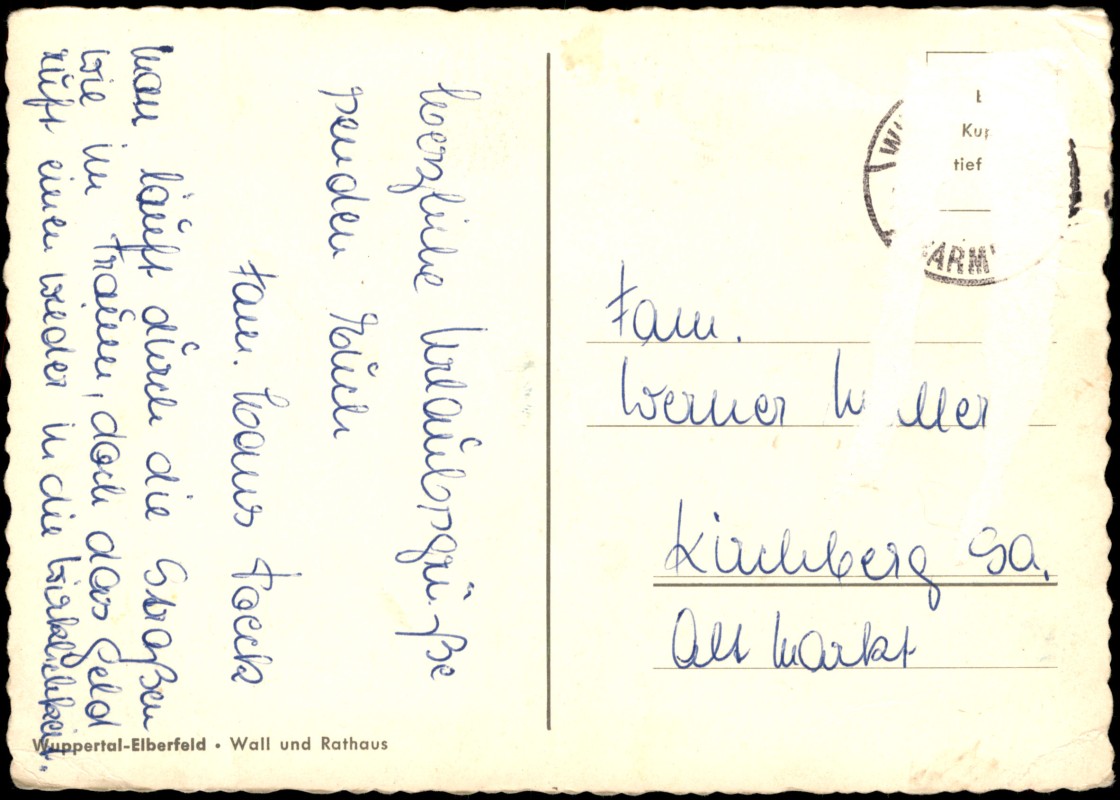 Herzliche Urlaubsgrüße
senden Euch
Fam. Hans
Man läuft durch die Straßen
wie im Traum, doch das Geld
ruft einen wieder in die Wirklichkeit.
Wuppertal-Elberfeld • Wall und Rathaus
Kup
tief
W
ARM
Fam.
Werner
Kirchberg Sa.
Alt Markt